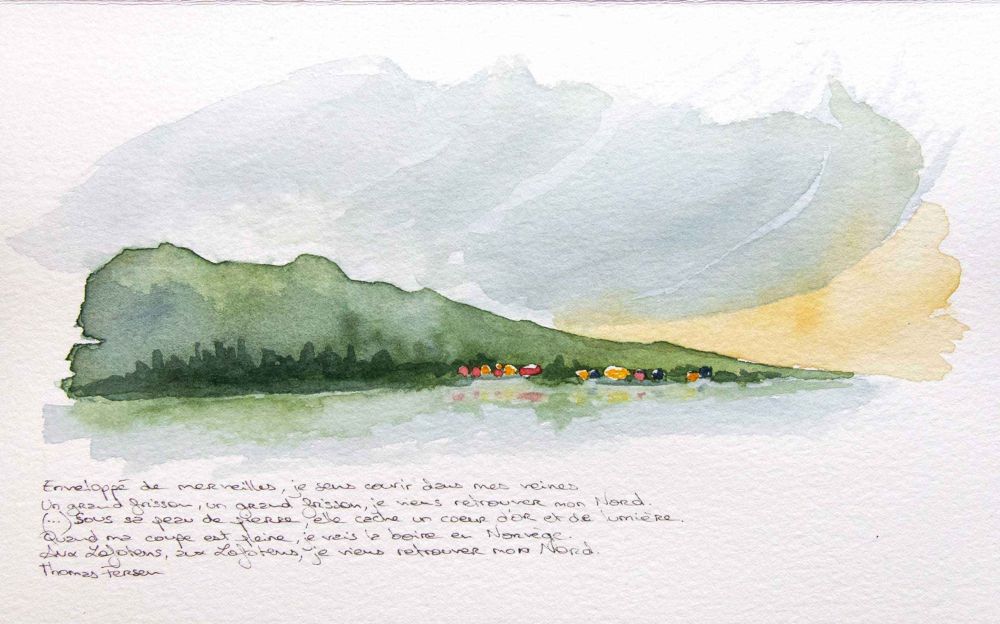 Enveloppé de merveilles, je sens courir dans mes veines
Un grand frisson, un grand frisson, je viens retrouver mon Nord.
(...) Sous sa peau de pierre, elle cache un coeur d'or et de lumière.
Quand ma coupe est pleine, je vais la boire en Norvège.
Aux Lofotens, aux Lofotens, je viens retrouver mon Nord.
Thomas Fersen